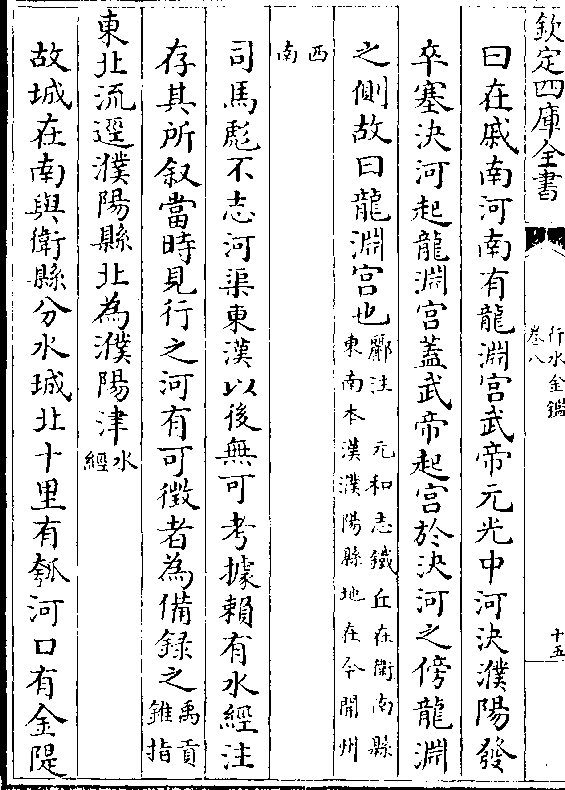 欽定四庫全書
行水金鑑
卷八
十五
曰在戚南河南有龍淵宮武帝元光中河決濮陽發
卒塞決河起龍淵宮蓋武帝起宮於決河之傍龍淵
之側故曰龍淵宮也酈注 元和志鐵丘在衛南縣
東南本漢濮陽縣地在今開州
西
南
司馬彪不志河渠東漢以後無可考據賴有水經注
存其所叙當時見行之河有可徵者為備録之禹貢
錐指
東北流逕濮陽縣北為濮陽津水
經
故城在南與衛縣分水城北十里有瓠河口有金隄